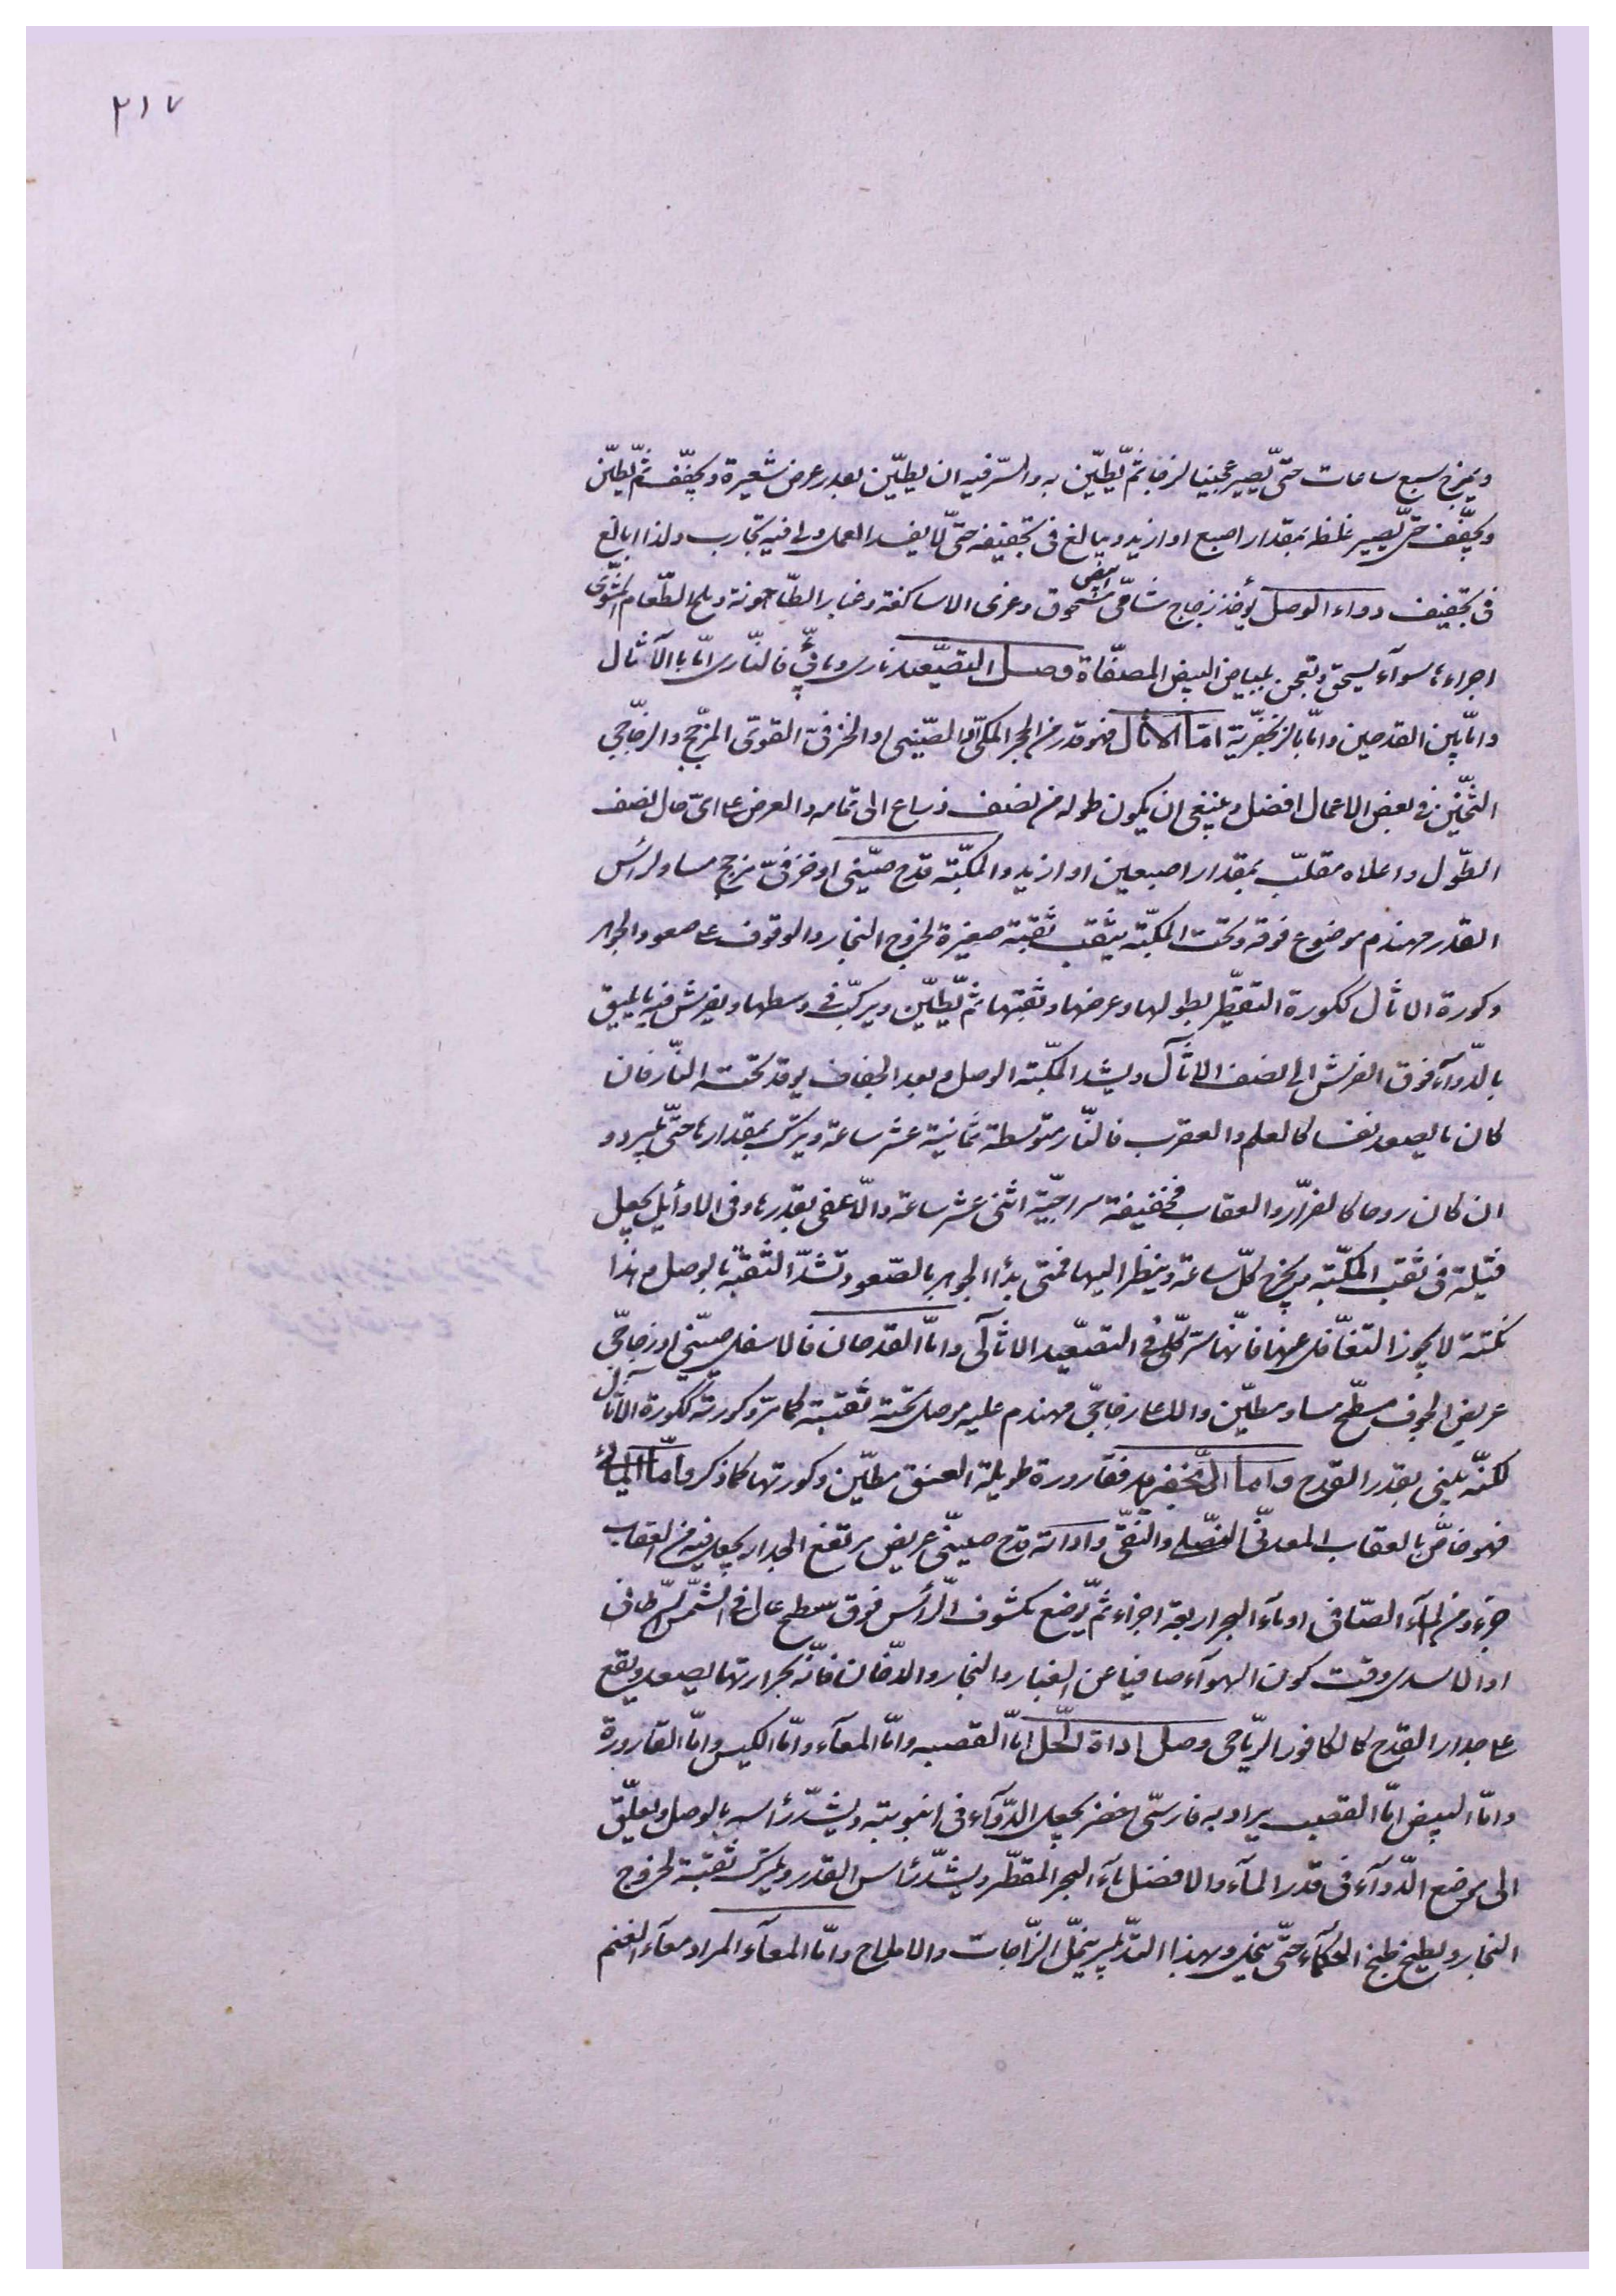 ٢١٧
ويمزج سبع ساعات حتّى يصير عجينا لزجا ثمّ يطيّن به والسّر فيه ان يطيّن بقدر عرض شعيرة ويجفّف ثمّ يطيّن
ويجفّف حتّى يصير غلظه بمقدار اصبع او ازيد ويبالغ فى تجفيفه حتّى لا يفسد العمل ولى فيه تجارب ولذا ابالغ
فى تجفيف دواء الوصل يؤخذ زجاج شامّى ابيض مسحوق وغرى الاساكفة وغبار الطّاحونة وملح الطّعام المشوّى
اجزاء سوآء يسحق وتعجن ببياض البيض المصفّاة وصل التصعيد نارى ومائىّ فالنّارى امّا بالآثال
وامّا بين القدحين وامّا بالزنجفريّة امّا الاثال فهو قدر من الحجر المكّى او الصّينى او الخزفىّ القوىّ المزجّج والزجّاجى
الثّخين فى بعض الاعمال افضل وينبغى ان يكون طوله من نصف ذراع الى تمامه والعرض على اىّ حال نصف
الطّول واعلاه مقلّب بمقدار اصبعين او ازيد والمكبّة قدح صينى او خزفىّ مزجج مساو لرأس
القدر مهندم موضوع فوقه وتحت المكبّة يثقب ثقبة صغيرة لخروج البخار والوقوف على صعود الجوهر
وكورة الاثال ككورة التقطير بطولها وعرضها وثقبتها ثمّ يطيّن ويركّب فى وسطها ويفرش فيه ما يليق
بالدّوآء فوق الفرش الى نصف الاثال ويشد المكبّة الوصل وبعد الجفاف يوقد تحته النّار فان
كان ما يصعد نفسا كالعلم والعقرب فالنّار متوسطة ثمانية عشر ساعة ويترك بمقدارها حتّى يبرد و
ان كان روحا كالفرّار والعقاب فخفيفة سراجيّة اثنى عشر ساعة والّا فبقدرها وفى الاوأيل يجعل
فتيلة فى ثقب المكبّة ويخرج كلّ ساعة وينظر اليها فمتى بدأ الجوهر بالصّعود تشدّ الثقبة بالوصل وهذا
نكتة لا يجوز التغافل عنها فانّها سرّ كلّى فى التصعيد الاثالى وامّا القدحان فالاسفل صينى او زجاجّى
عريض الجوف مسطّح مساو مطيّن والاعلى زجاجّى مهندم عليه موصل تحته ثقبة كما مرّ وكورته ككورة الاثال
لكنّه يبنى بقدر القدح وامّا الزنجفرية فقارورة طويلة العنق مطيّن وكورتها كما ذكر وامّا المائى
فهو خاصّ بالعقاب المعدنّى والنّقى واداته قدح صينّى عريض مرتفع الجدار يجعل فيه من العقاب
جزء ومن المآء الصّافى او مآء البحر اربعة اجزاء ثمّ يوضع مكشوف الرّأس فوق سطح عال فى الشمس السّرطانى
او الاسدى وقت كون الهوآء صافيا عن الغبار والبخار والدّخان فانّه بحرارتها يصعد ويقع
على جدار القدح كالكافور الرّياحى وصل اداة الحّل امّا القصب وامّا المعآء وامّا الكيس وامّا القارورة
وامّا البيض امّا القصب يراد به فارسّى اخضر يجعل الدّوآء فى انبوبته ويشدّ رأسه بالوصل ويعلّق
الى موضع الدّوآء فى قدر المآء والافضل مآء البحر المقطّر ويشدّ رأس القدر ويترك ثقبة لخروج
البخار ويطبخ طبخ الحكمآء حتّى ينحل وبهذا التدبير ينحلّ الزّاجات والاملاح وامّا المعآء المراد معآء الغنم